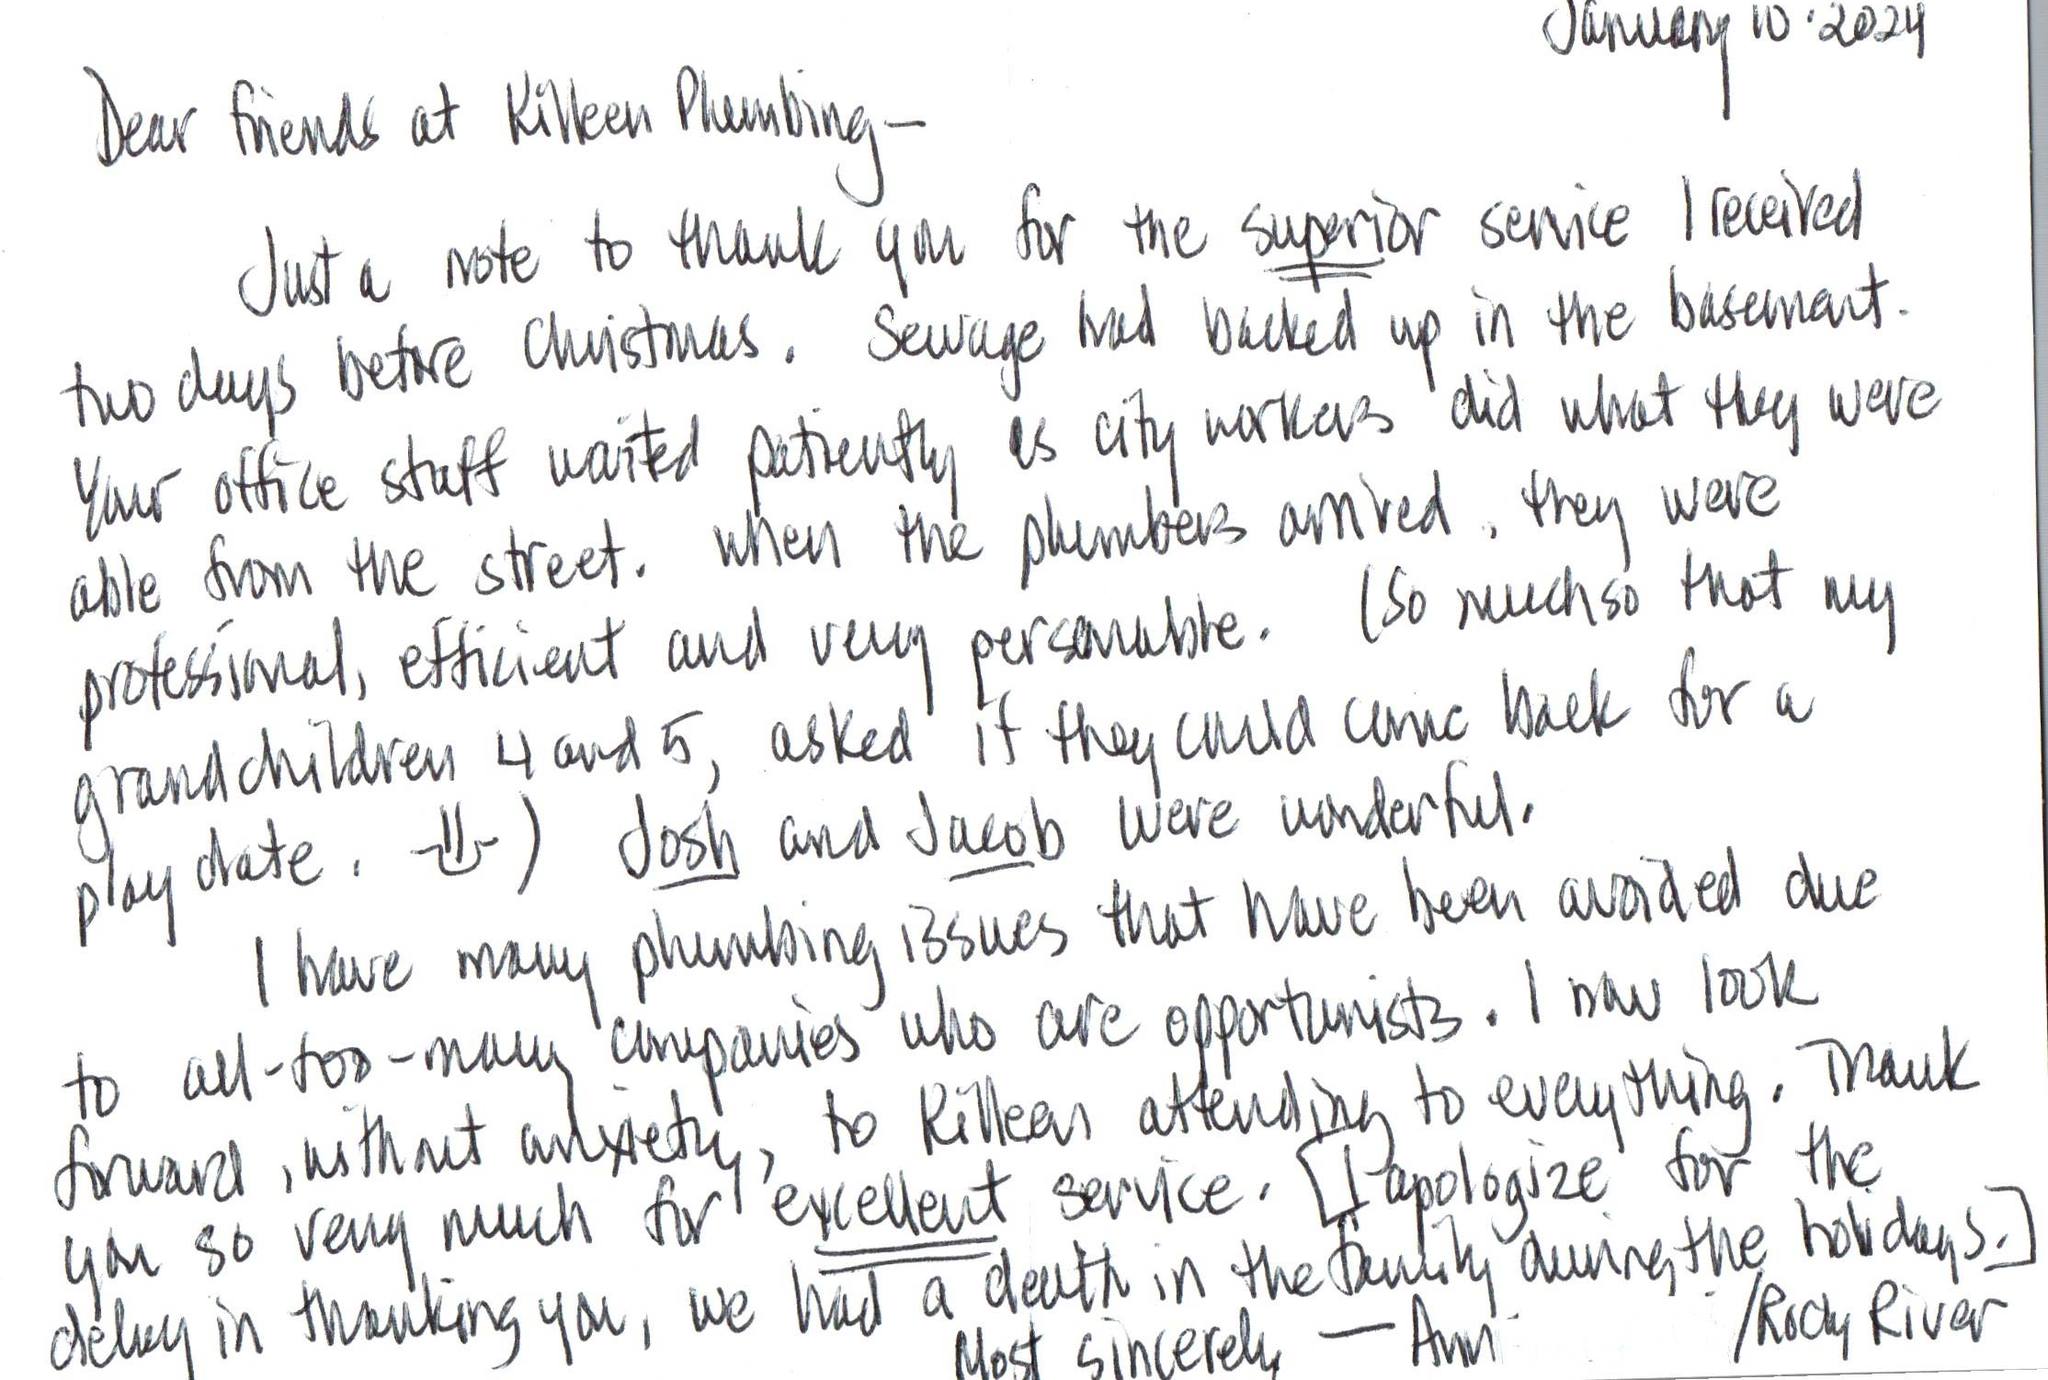 January 10 · 2024
Dear friends at Killeen Plumbing —
Just a note to thank you for the superior service I received
two days before Christmas. Sewage had backed up in the basement.
Your office staff waited patiently as city workers did what they were
able from the street. When the plumbers arrived, they were
professional, efficient and very personable. (So much so that my
grandchildren 4 and 5, asked if they could come back for a
play date. ) Josh and Jacob were wonderful.
I have many plumbing issues that have been avoided due
to all-too-many companies who are opportunists. I now look
forward, without anxiety, to Killeen attending to everything. Thank
you so very much for excellent service. [I apologize for the
delay in thanking you, we had a death in the family during the holidays.]
Most sincerely — Ann /Rocky River